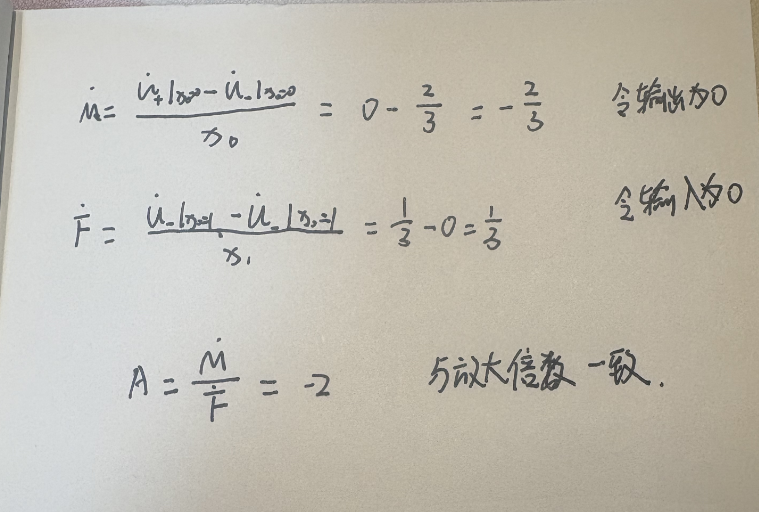 Ṁ = (U̇₊|ₓ₌₀ - U̇₋|ₓ₌₀) / x₀ = 0 - 2/3 = - 2/3 令输出为0
Ḟ = (U̇₋|ₓ₌₁ - U̇₋|ₓ₌₁) / x₁ = 1/3 - 0 = 1/3 令输入为0
A = Ṁ / Ḟ = -2 与放大倍数一致.